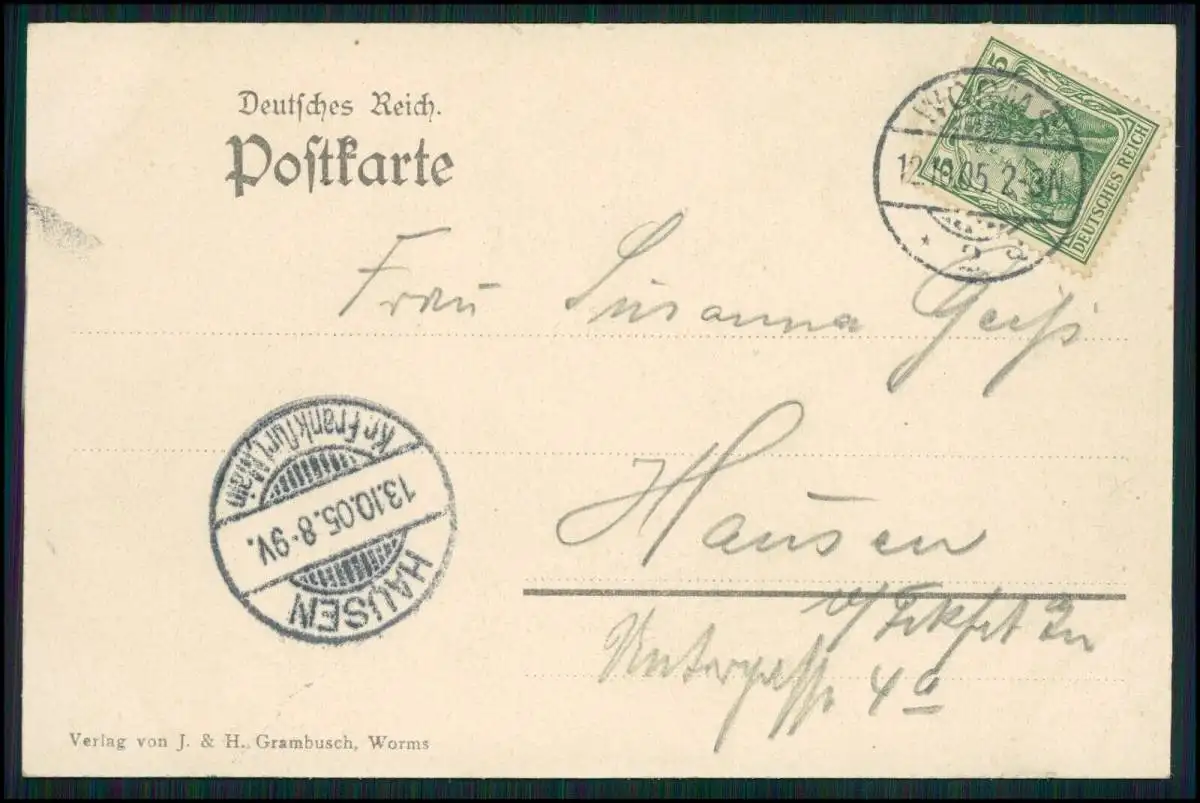 Deutsches Reich.
Postkarte
5
5
DEUTSCHES REICH
WORMS
12.10.05. 2-3N
* 2
Frau Susanna Geiß
Hausen
Frkfrt
Untergasse 4a
Kr. Frankfurt, Main
13.10.05. 8-9V.
HAUSEN
Verlag von J. & H. Grambusch, Worms